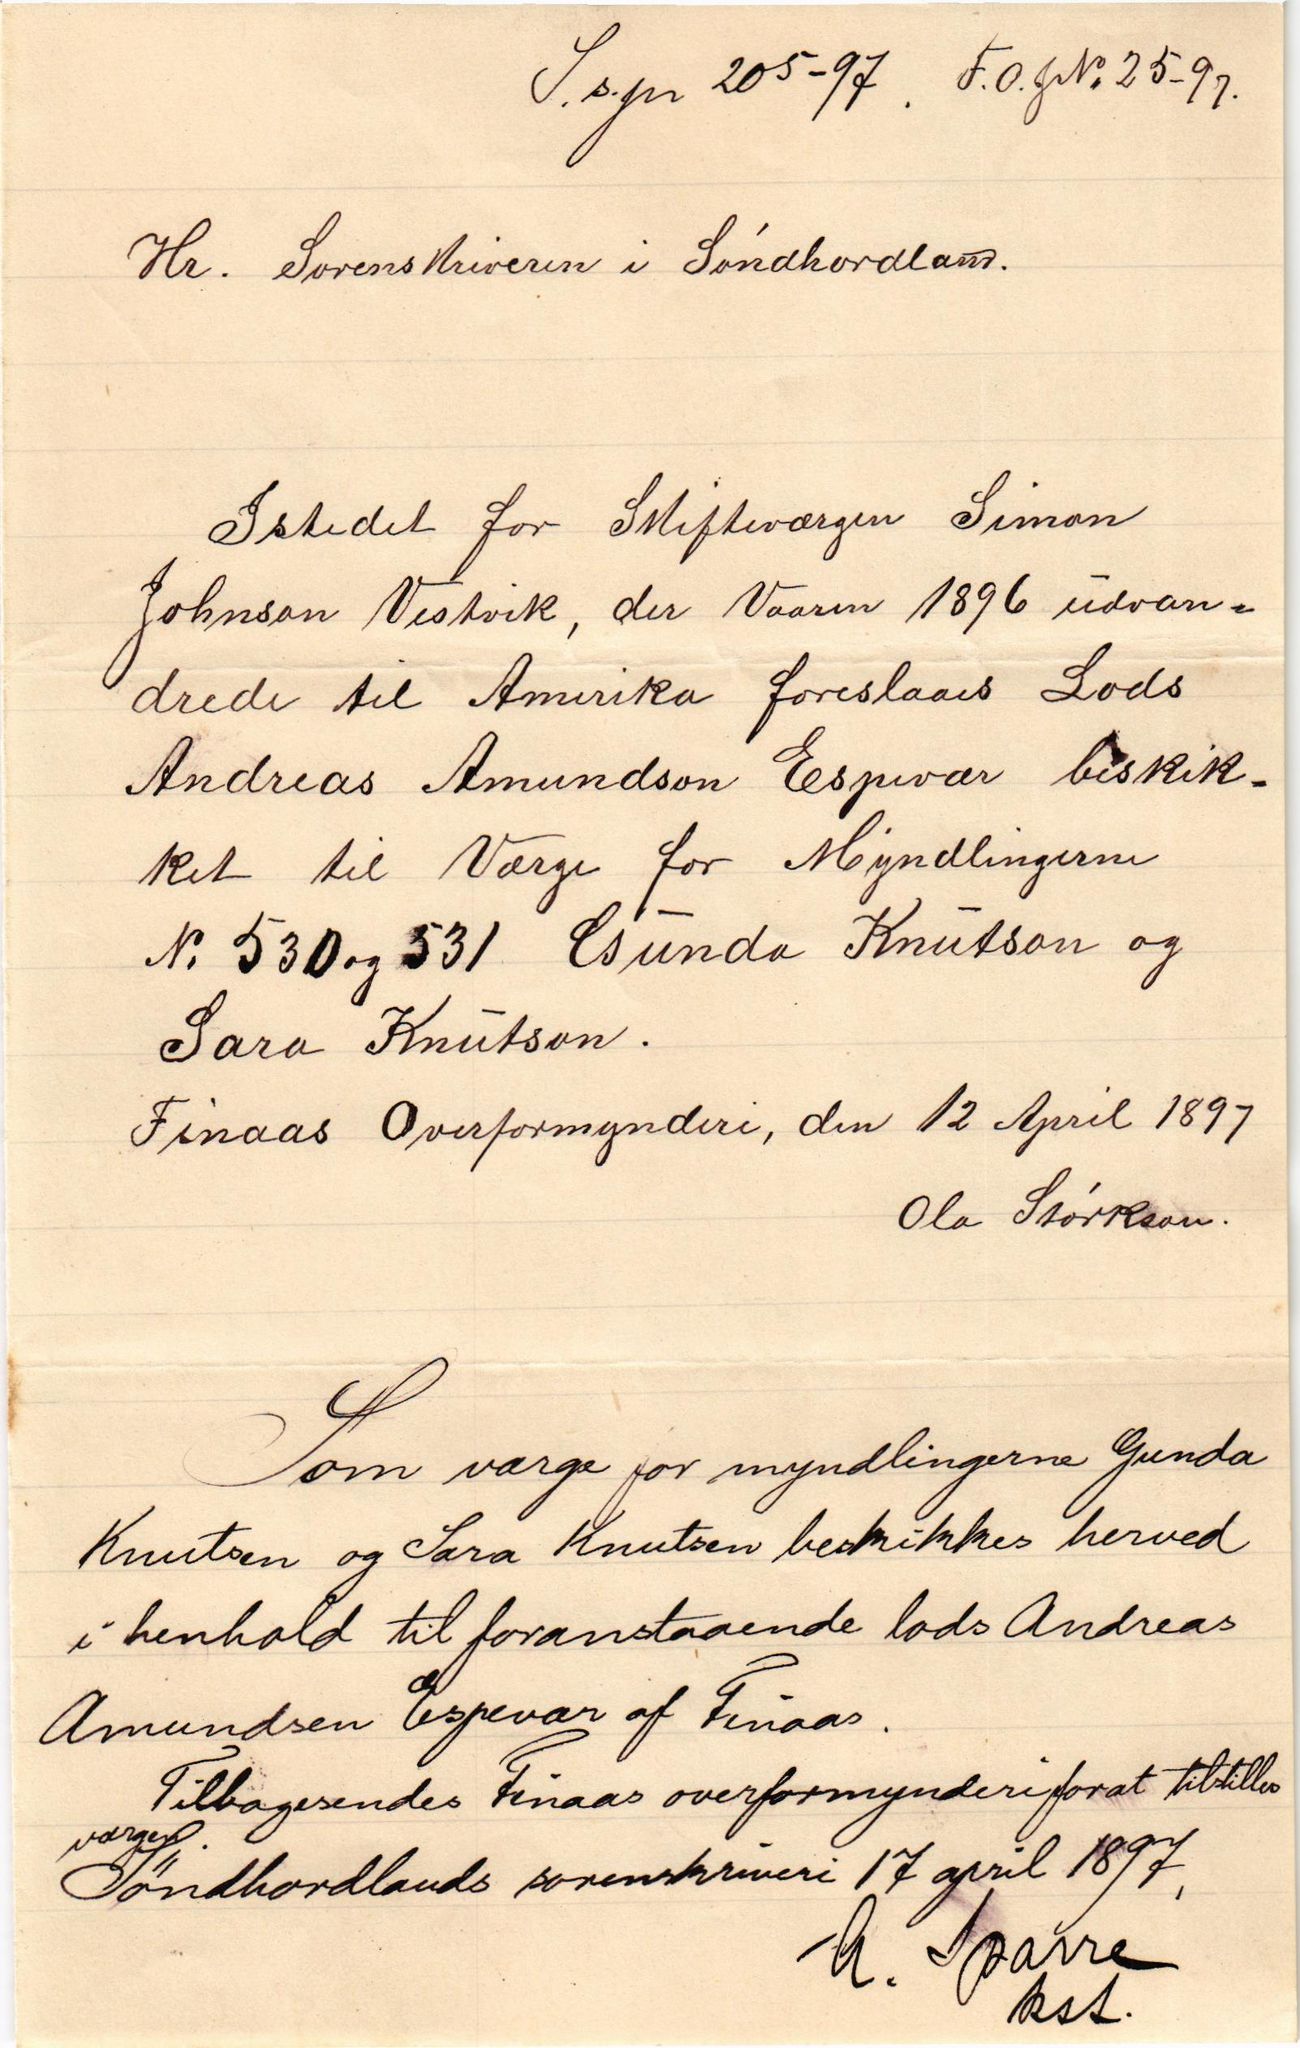 S.s.jn 205-97. F.O.J№ 25-97.
Hr. Sorenskriveren i Söndhordland.
Istedet for Skifteværgen Simon
Johnson Vestvik, der Vaaren 1896 udvan-
drede til Amerika foreslaaes Lods
Andreas Amundson Espevær beskik-
ket til Værge for Myndlingerne
N. 530 og 531 Gunda Knutson og
Sara Knutson.
Finaas Overformynderi, den 12 April 1897
Ola Störkson.
Som værge for myndlingerne Gunda
Knutsen og Sara Knutsen beskikkes herved
i henhold til foranstaaende lods Andreas
Amundsen Espevær af Finaas.
Tilbagesendes Finaas overformynderi forat tilstilles
værgen.
Söndhordlands sorenskriveri 17 april 1897,
A. Sparre
kst.